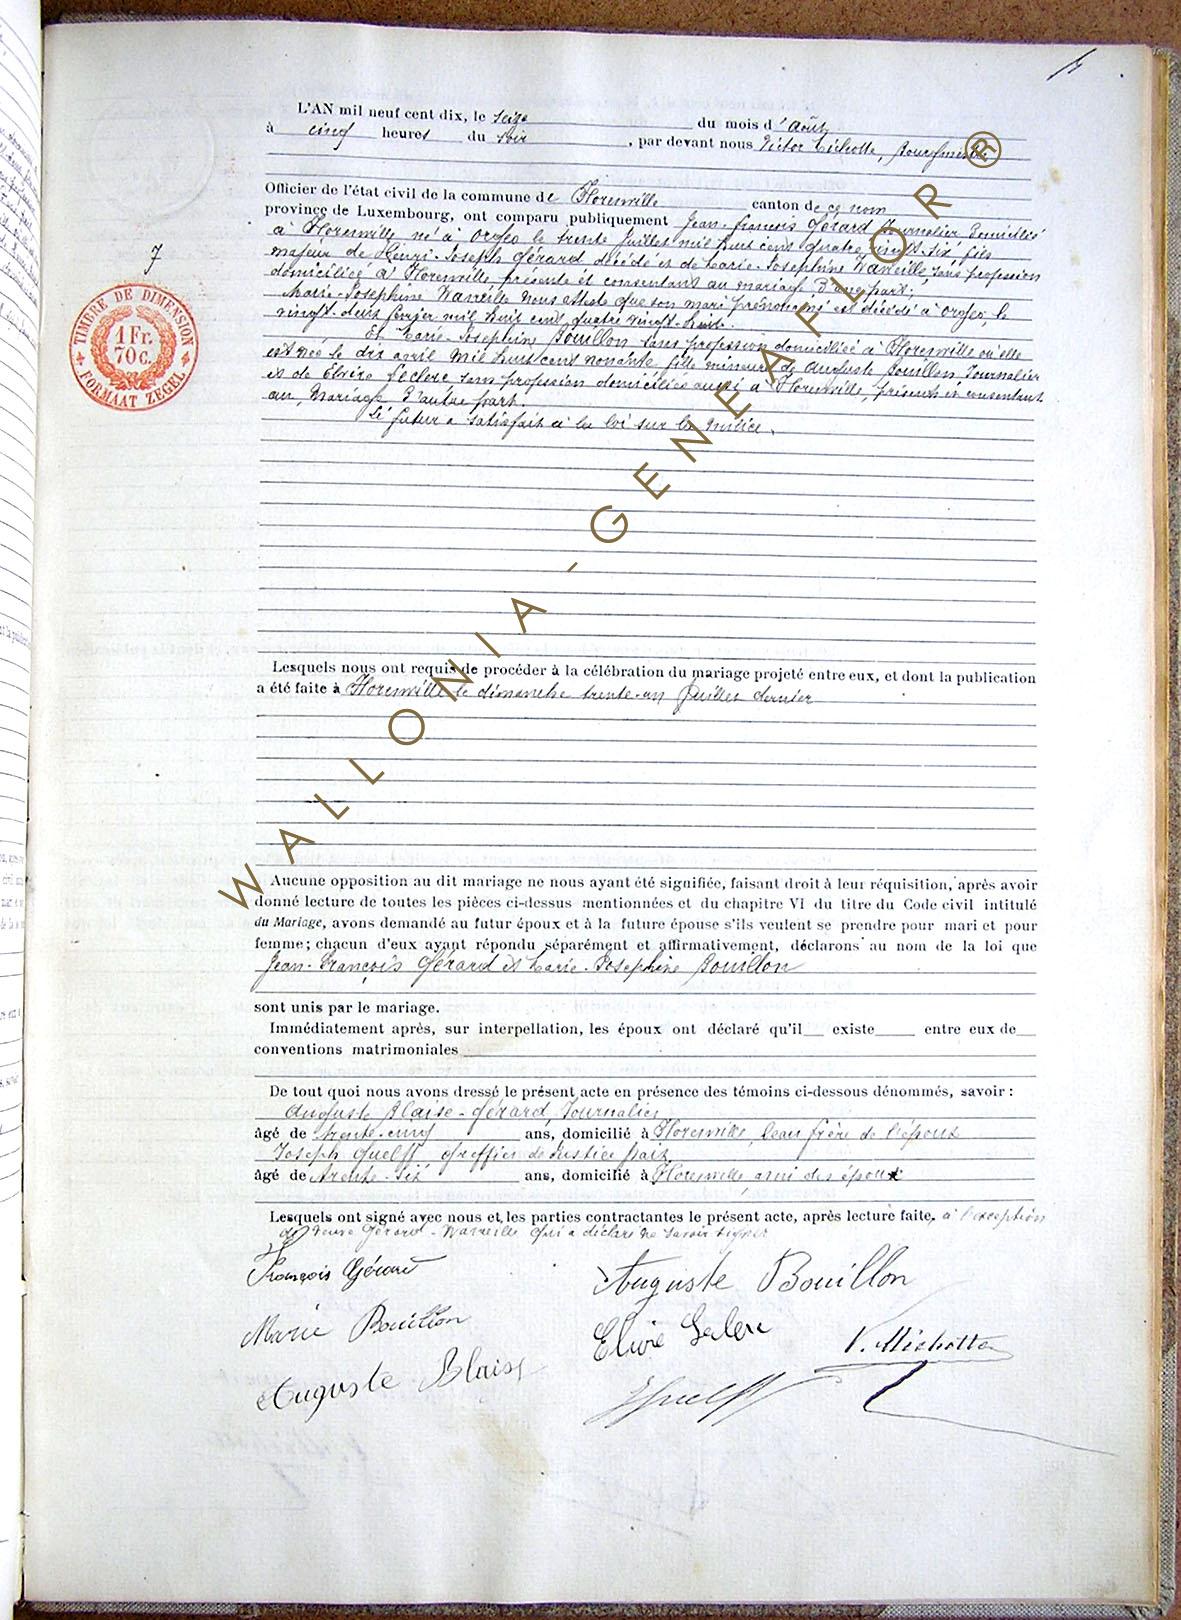 L'AN mil neuf cent dix, le seize du mois d'Août
à cinq heures du soir, par devant nous Victor Michotte, Bourgmestre
Officier de l'état civil de la commune de Florenville canton de ce nom
province de Luxembourg, ont comparu publiquement Jean-François Gérard Journalier domicilié
à Florenville né à Orgeo le trente Juillet mil huit cent quatre vingt-six fils
majeur de Henri-Joseph Gérard décédé et de Marie-Josephine Wavreille, sans profession
domiciliée à Florenville, présente et consentant au mariage D'une part;
Marie-Josephine Wavreille nous atteste que son mari prénommé est décédé à Orgeo, le
vingt-deux février mil huit cent quatre vingt-huit.
Et Marie-Josephine Bouillon sans profession domiciliée à Florenville où elle
est née le dix avril mil huit cent nonante fille mineure de Auguste Bouillon Journalier
et de Elvire Leclerc sans profession domiciliés aussi à Florenville, présents et consentant
au Mariage D'autre part.
Le futur a satisfait à la loi sur la milice.
7
TIMBRE DE DIMENSION
1 Fr.
70 c.
FORMAAT ZEGEL
Lesquels nous ont requis de procéder à la célébration du mariage projeté entre eux, et dont la publication
a été faite à Florenville le dimanche trente-un Juillet dernier
Aucune opposition au dit mariage ne nous ayant été signifiée, faisant droit à leur réquisition, après avoir
donné lecture de toutes les pièces ci-dessus mentionnées et du chapitre VI du titre du Code civil intitulé
du Mariage, avons demandé au futur époux et à la future épouse s'ils veulent se prendre pour mari et pour
femme; chacun d'eux ayant répondu séparément et affirmativement, déclarons au nom de la loi que
Jean-François Gérard et Marie-Josephine Bouillon
sont unis par le mariage.
Immédiatement après, sur interpellation, les époux ont déclaré qu'il existe entre eux de
conventions matrimoniales
De tout quoi nous avons dressé le présent acte en présence des témoins ci-dessous dénommés, savoir :
Auguste Blaise-Gérard, Journalier
âgé de trente-cinq ans, domicilié à Florenville, beau frère de l'époux
Joseph Guelff Greffier de Justice paix
âgé de trente-six ans, domicilié à Florenville, ami des époux
Lesquels ont signé avec nous et les parties contractantes le présent acte, après lecture faite, à l'exception
de Veuve Gérard-Wavreille qui a déclaré ne savoir signer
François Gérard
Auguste Bouillon
Marie Bouillon
Elvire Leclerc
V. Michotte
Auguste Blaise
JGuelff
WALLONIA-GENEAFLOR®